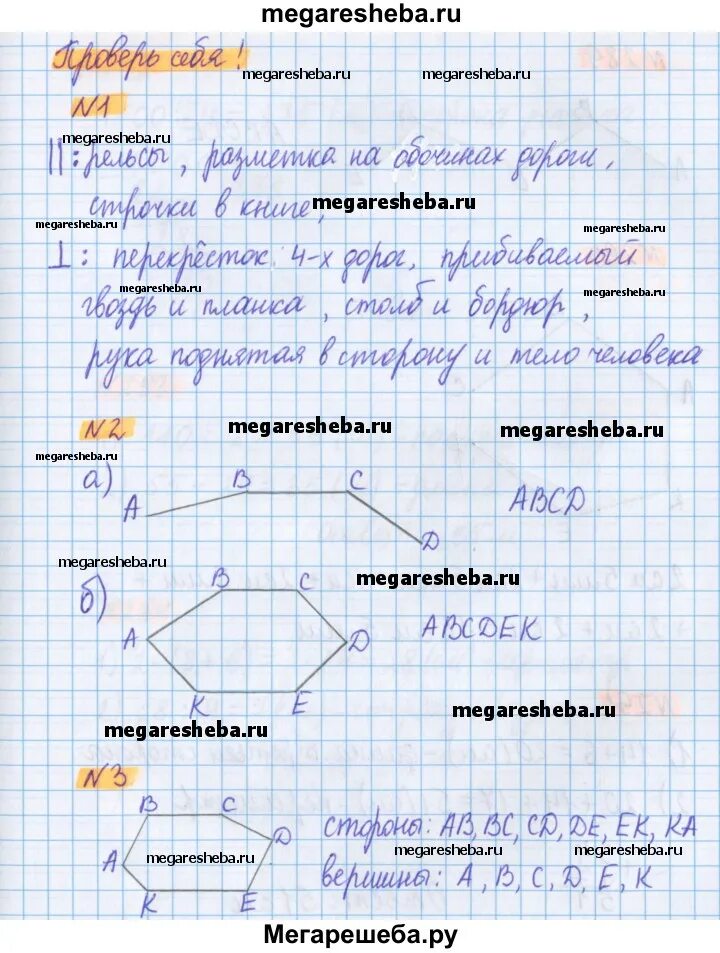 megaresheba.ru
Проверь себя!
megaresheba.ru
megaresheba.ru
№1
megaresheba.ru
||: рельсы, разметка на обочинах дороги,
строчки в книге,
megaresheba.ru
megaresheba.ru
megaresheba.ru
⊥: перекрёсток 4-х дорог, прибиваемый
megaresheba.ru
гвоздь и планка, столб и бордюр,
megaresheba.ru
рука поднятая в сторону и тело человека
№2
megaresheba.ru
megaresheba.ru
megaresheba.ru
а)
A
B
C
D
ABCD
megaresheba.ru
megaresheba.ru
б)
A
B
C
D
K
E
ABCDEK
megaresheba.ru
megaresheba.ru
№3
B
C
D
A
K
E
megaresheba.ru
стороны: AB, BC, CD, DE, EK, KA
megaresheba.ru
megaresheba.ru
вершины: A, B, C, D, E, K
Мегарешеба.ру